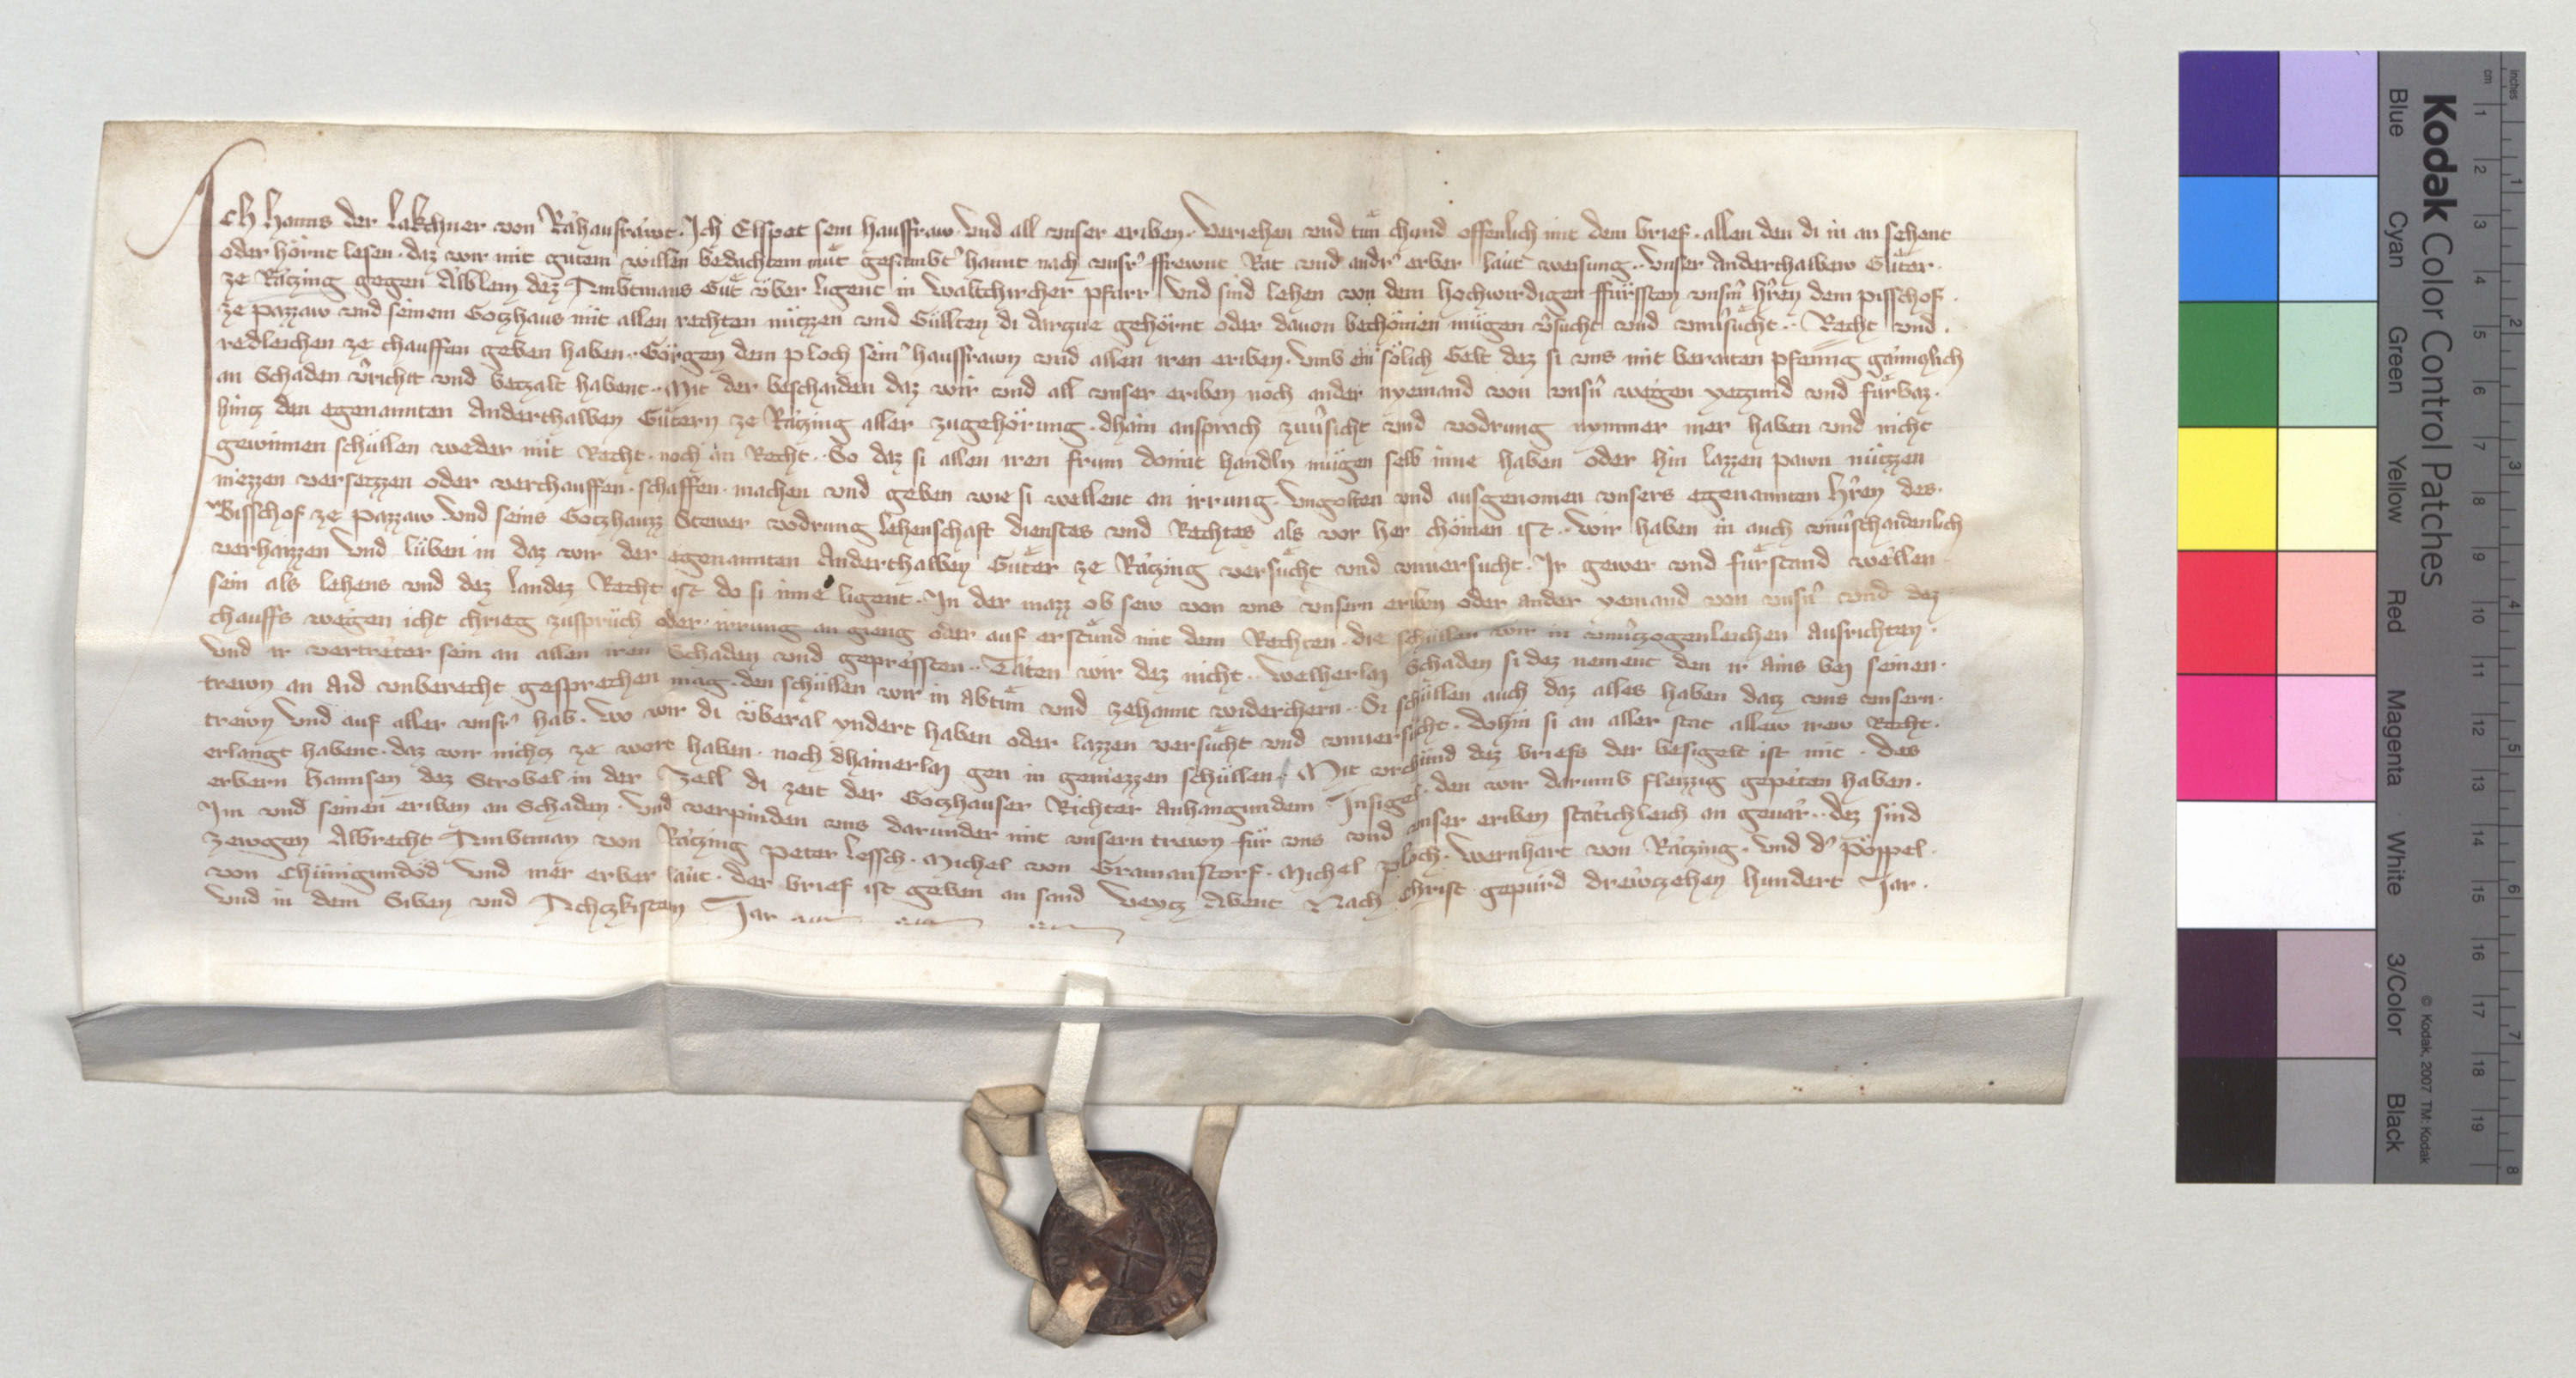 Ich Hanns der Lakchner von Rahausräwt. Ich Elspet sein hausfraw. Vnd all vnser eriben. Veriehen vnd tün chund offenlich mit dem brief. allen den di in an sehent
oder hörnt lesen. daz wir mit gutem willen bedachtem müt gesambt' hannt nach vnsr' ffrewnt Rat vnd andr' erber läut weisung. Vnser Anderthalbew Güter.
ze Rätzing gegen Älblein dez Ambtmans Güt über ligent in Waltchircher pfarr Vnd sind lehen von dem hochwirdigen ffürssten vnsm h'ren dem pisschof.
ze pazzaw vnd seinem Gotzhaus mit allen rechten nützzen vnd Güllten di darzue gehörnt oder dauon bechömen mügen v'sücht vnd vnu'sücht. Recht vnd.
redleichen ze chauffen geben haben. Görgen dem ploch sein' hausfrawn vnd allen iren eriben. vmb ein sölich Gelt dez si vns mit beraiten pfennig gäntzlich
an Schaden v'richtt vnd betzalt habent. Mit der beschaiden daz wir vnd all vnser eriben noch ander nyemand von vnsn wegen yetzund vnd fürbaz.
hintz den egenannten Anderthalben Gütern ze Rätzing aller zugehörung. dhain ansprach zuu'sicht vnd vodrung nymmer mer haben vnd nicht
gewinnen schüllen weder mit Recht. noch an Recht. So daz si allen iren frum domit handln mügen selb inne haben oder hin lazzen pawn nützzen
niezzen versetzzen oder verchauffen. schaffen. machen vnd geben wie si wellent an irrung. Vngolten vnd ausgenomen vnsers egenannten h'ren des.
Bisschof ze pazzaw Vnd seins Gotzhauzz Stewer vodrung lehenschaft dienstes vnd Rechtes als vor her chömen ist. Wir haben in auch vnu'schaidenlich
verhaizzen Vnd lüben in daz wir der egenannten Anderthalben Güter ze Rätzing versücht vnd vnuersücht. Ir gewer vnd fürstand wellen
sein als lehens vnd dez landez Recht ist do si inne ligent. In der mazz ob sew von vns vnsern eriben oder ander yemand von vnsn vnd dez
chauffs wegen icht chrieg zusprüch oder. irrung an gieng oder auf erstünd mit dem Rechten. die schüllen wir in vnu'tzogenleichen Ausrichten.
Vnd ir vertreter sein an allen iren Schaden vnd gepressten. Täten wir dez nicht. Welherlay Schaden si dez nement den ir ains bey seinen.
trewn an Aid vnberecht gesprechen mag. den schüllen wir in Abtün vnd zehannt widerchern. Si schüllen auch daz alles haben datz vns vnsern.
trewn Vnd auf aller vnsr' hab. Wo wir di überal yndert haben oder lazzen versücht vnd vnuersücht. dohin si an aller stat allew irew Recht.
erlangt habent. daz wir nichtz ze wort haben. noch dhainerlay gen in geniezzen schüllen. Mit vrchünd dez briefs der besigelt ist mit. Des
erbern Hannsen dez Strobel in der Zell di zeit der Gotzhauser Richter Anhangundem Insigel. den wir darumb fleizzig gepeten haben.
Im vnd seinen eriben an Schaden. Vnd verpinden vns darunder mit vnsern trewn für vns vnd vnser eriben stätichleich an geuär. dez sind
zewgen Albrecht Ambtman von Rätzing peter lessch. Michel von Gramanstorf. Michel ploch. Wernhart von Rätzing. Vnd d' Pöppel.
von Chünigundöd Vnd mer erber läut. der brief ist geben an sand Veytz Abent Nach Christ gepürd drewtzehen hundert Jar.
Vnd in dem Siben vnd Achtzkisten Jar
Kodak Color Control Patches
© Kodak, 2007 TM: Kodak
Blue Cyan Green Yellow Red Magenta White 3/Color Black
inches 1 2 3 4 5 6 7 8
cm 1 2 3 4 5 6 7 8 9 10 11 12 13 14 15 16 17 18 19